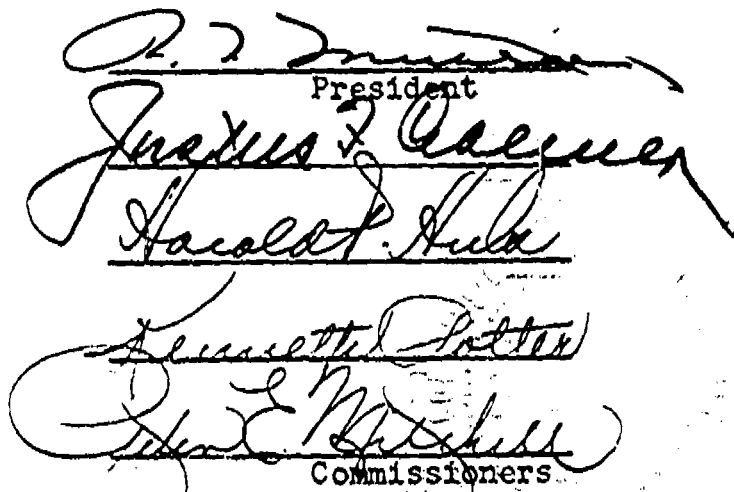 President
Justus F. Craemer
Harold P. Huls
Kenneth Potter
Peter E. Mitchell
Commissioners